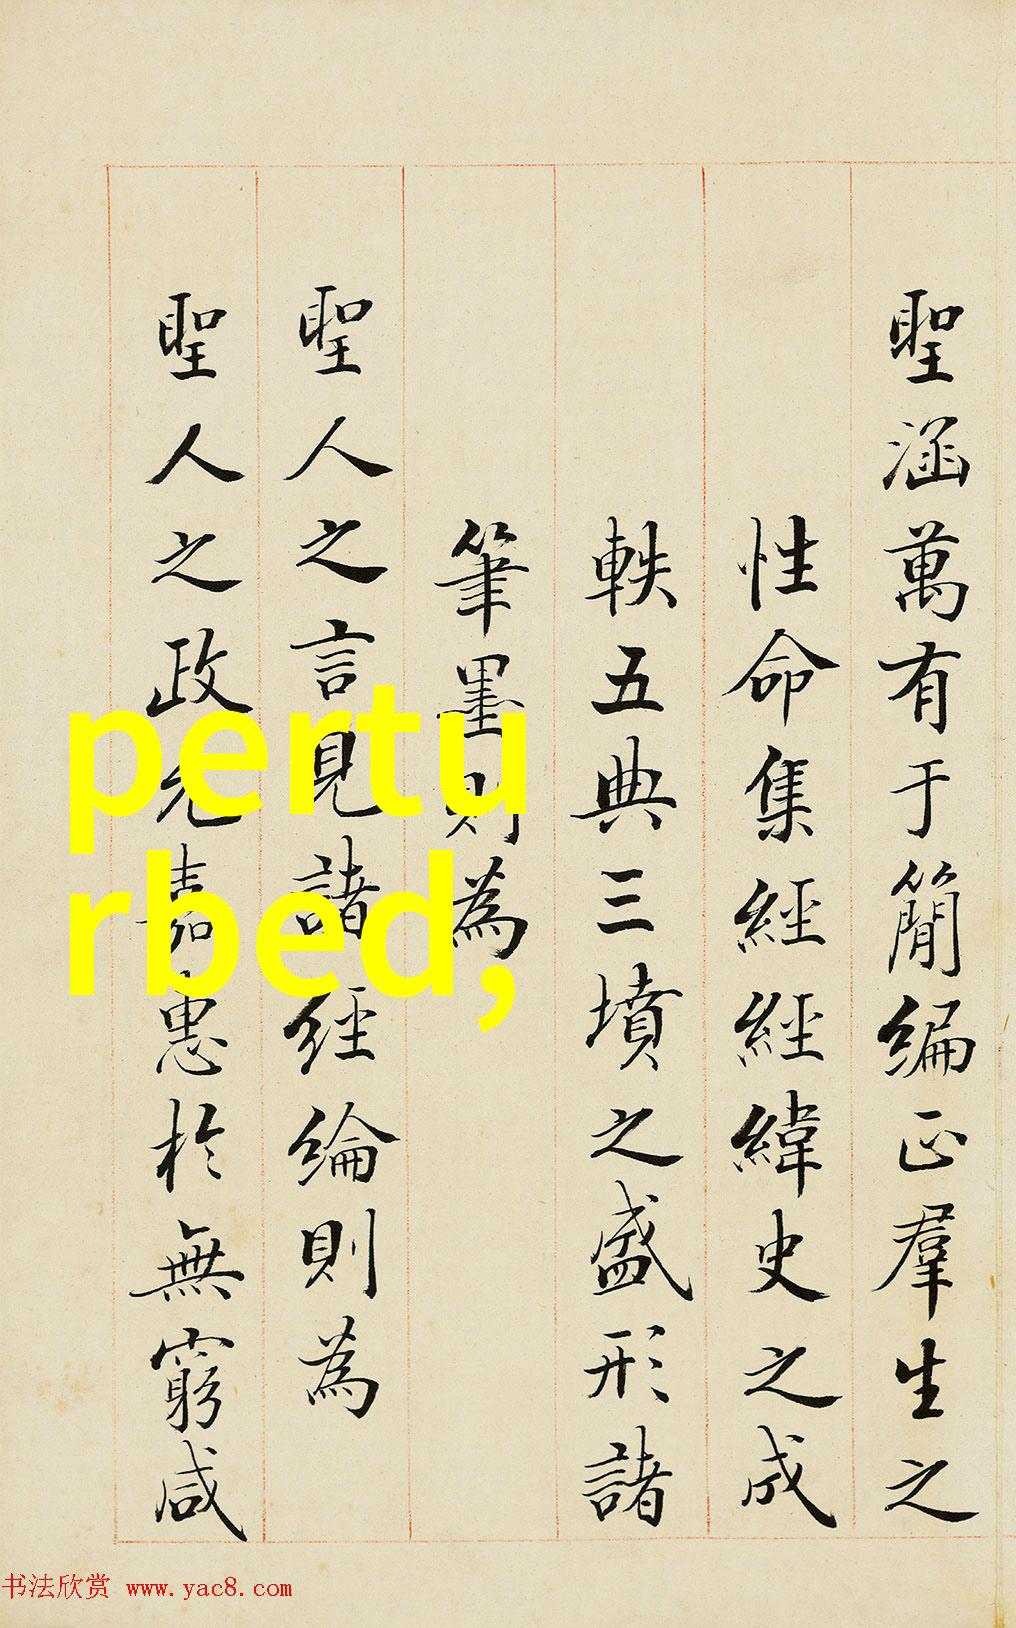 聖涵萬有于簡編正羣生之
性命集經經經緯史之成
軼五典三墳之盛形諸
筆墨則為
聖人之言見諸經綸則為
聖人之政允嘉惠於無窮咸
pertu
rbed,
书法欣赏 www.yac8.com